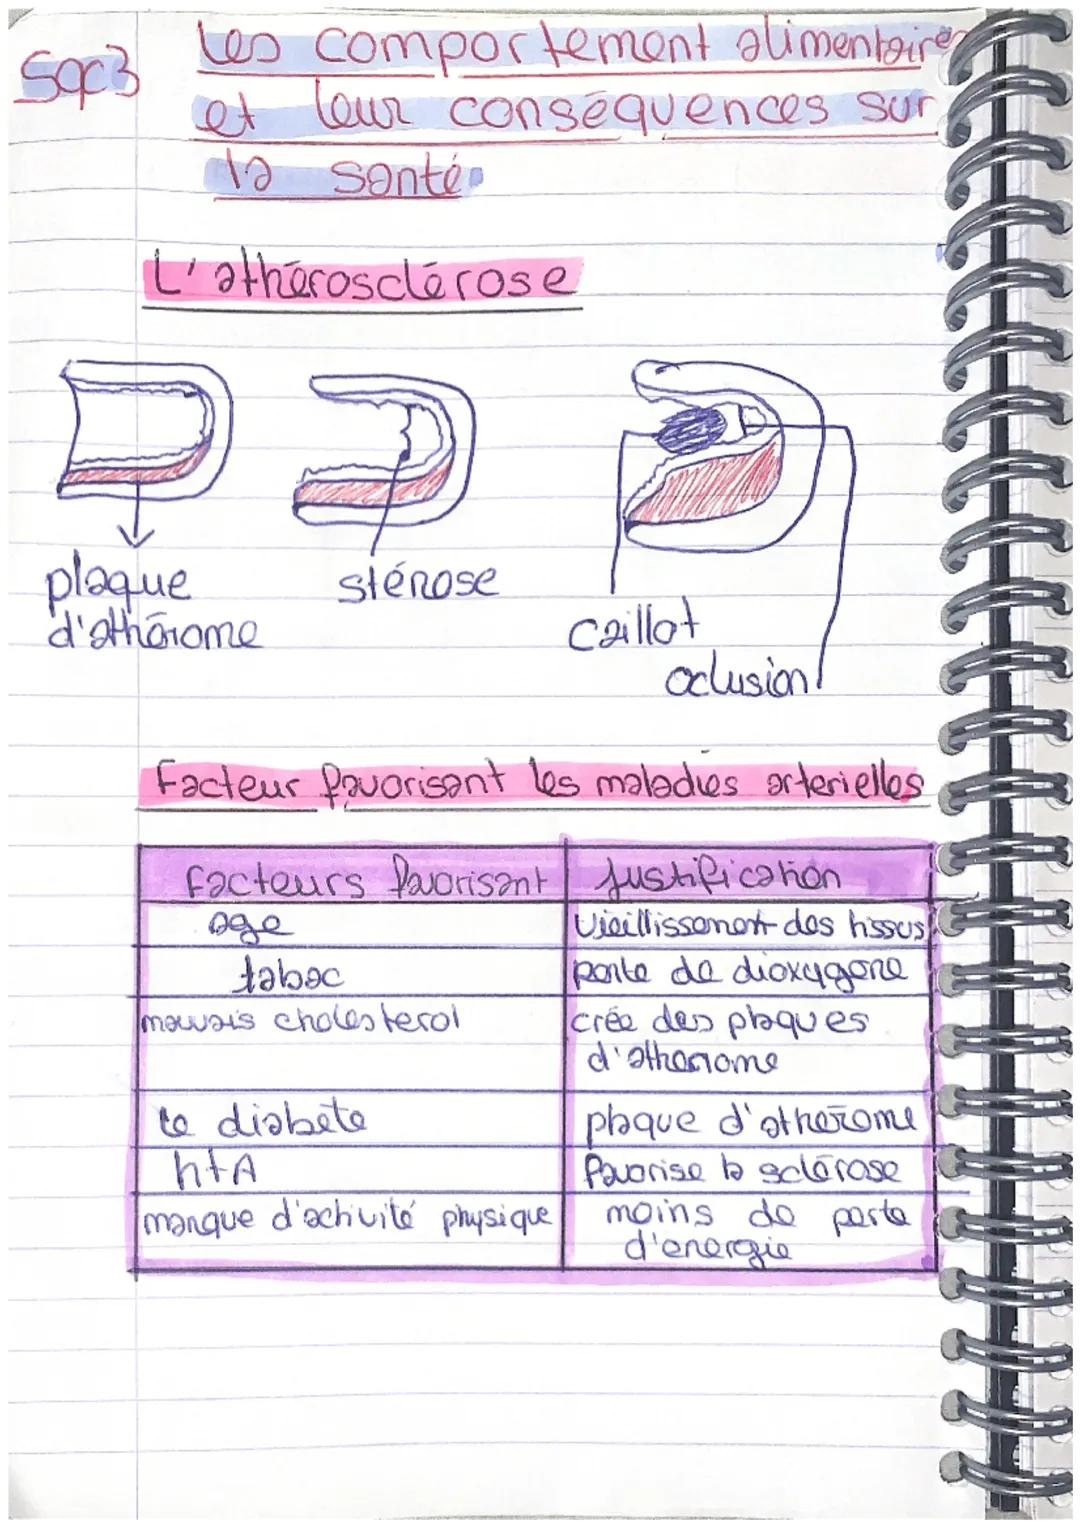 Sqc3
Les comportement alimentaires
et leur conséquences sur
la santé
L'athérosclérose
plaque
d'athérome
sténose
caillot
oclusion
Facteur favorisant les maladies arterielles
Facteurs favorisant
Justification
age
Vieillissement des tissus
tabac
perte de dioxygene
mauvais cholesterol
crée des plaques
d'atherome
le diabète
plaque d'atherome
htA
favorise la sclérose
manque d'activité physique
moins de perte
d'energie